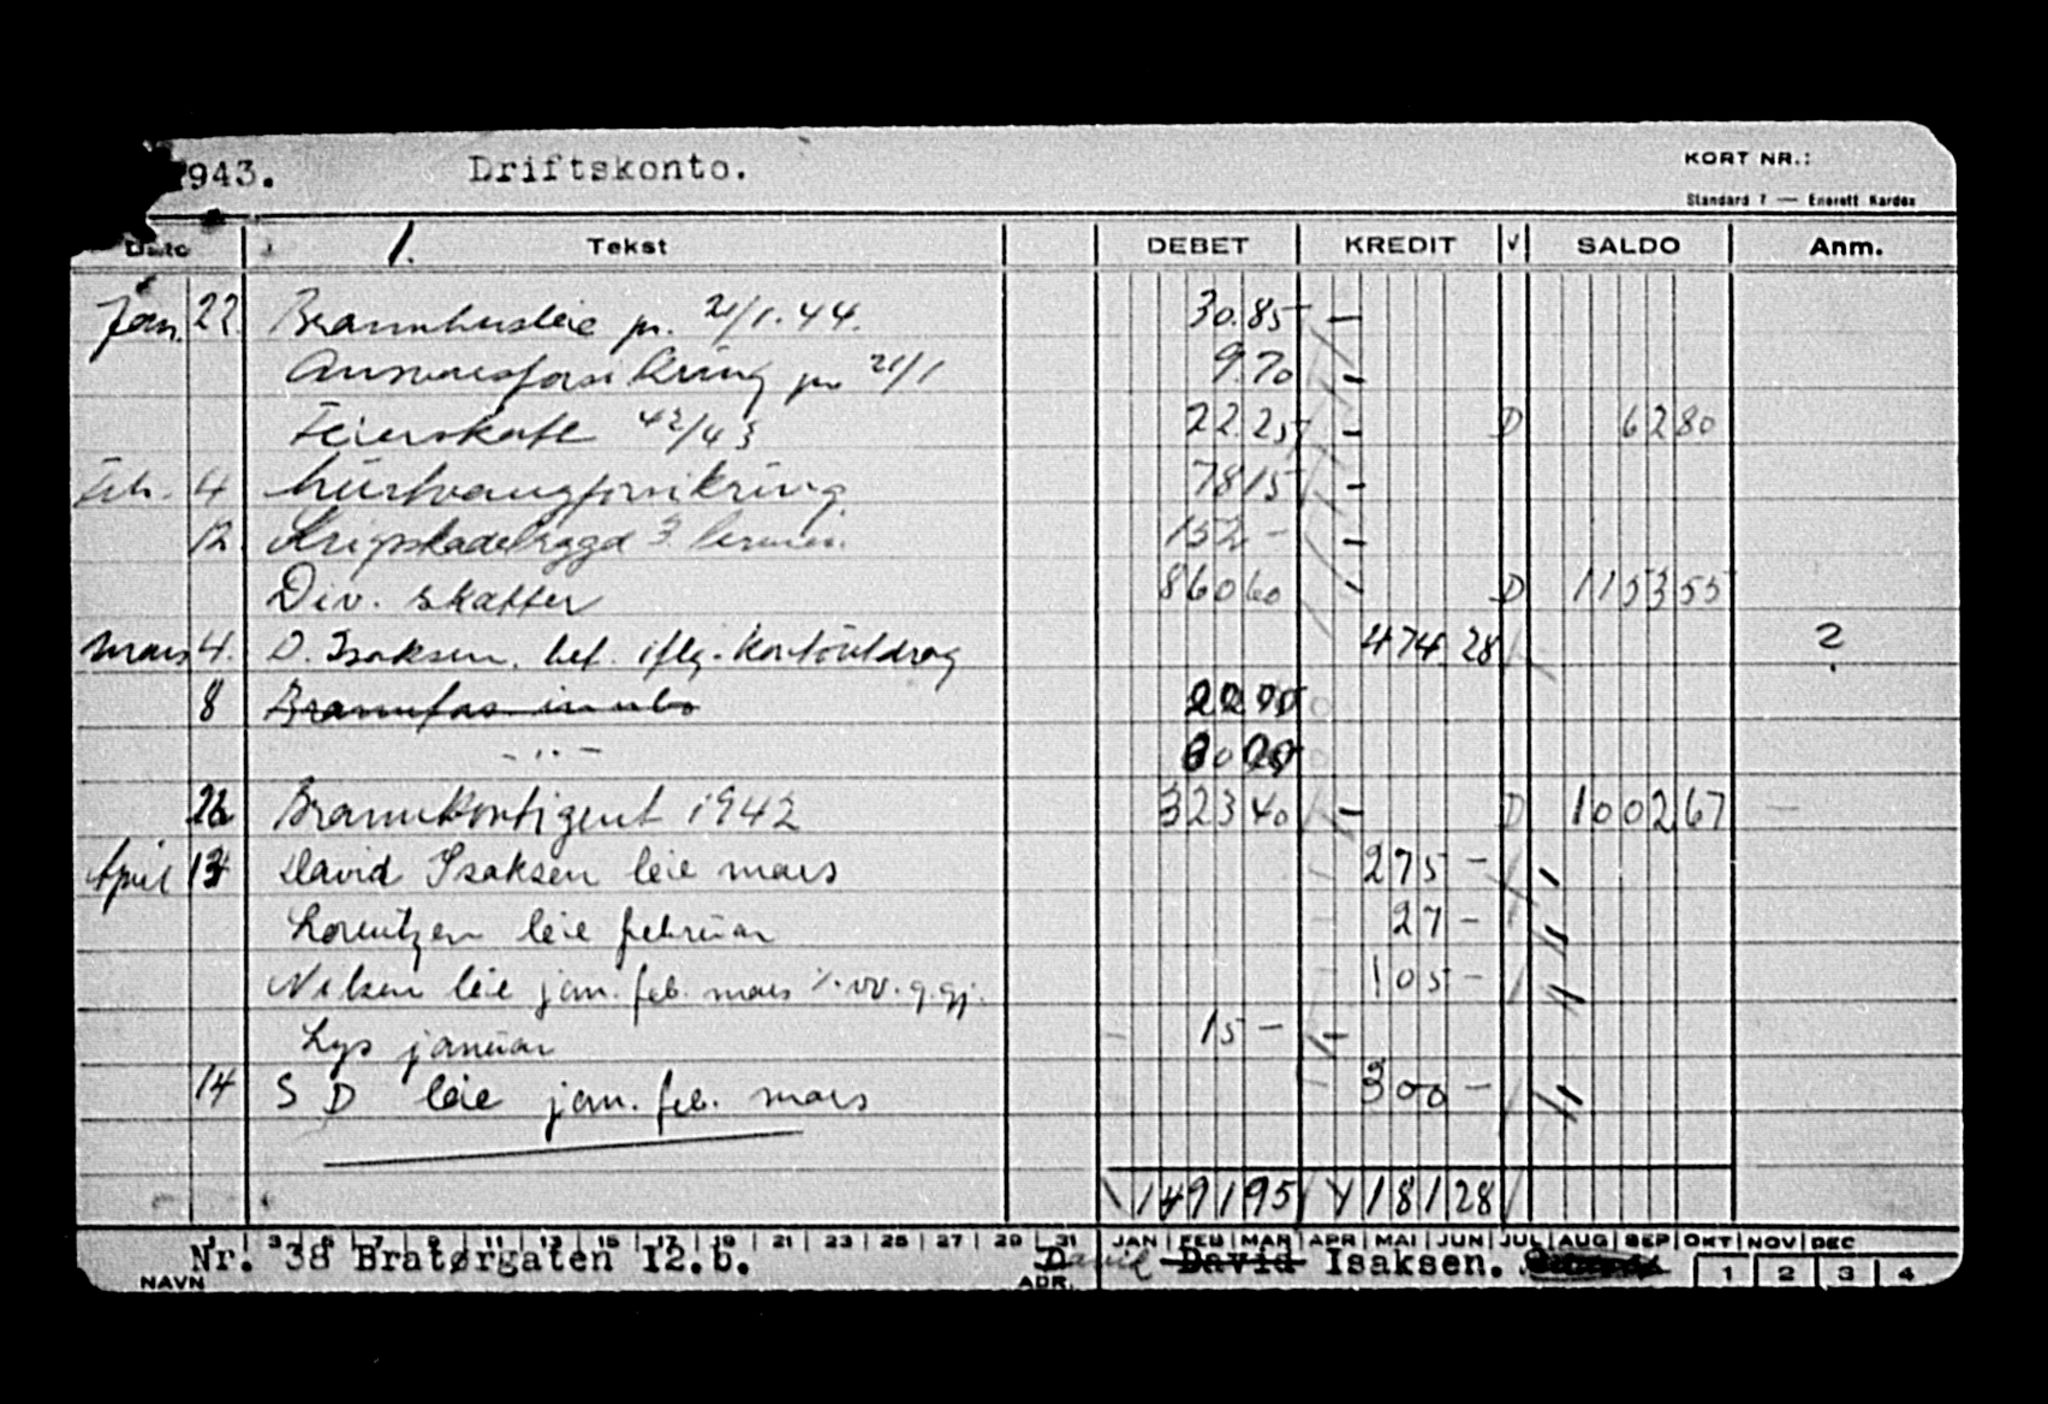 943. Driftskonto. KORT NR.:
Standard 7 — Enerett Kardex
Dato 1. Tekst DEBET KREDIT √ SALDO Anm.
Jan. 22. pr. 21/1. 44. 30.85 —
Ansvarsforsikring pr 21/1 9.70 —
Feierskatt 42/43 22.25 — D 6280
Feb. 4 7815 —
12. Krigsskadetrygd 3. termin. 152 - —
Div. skatter 86060 — D 115355
Mars 4. D. Isaksen. bet. iflg. kontoutdrag 474 28 ?
8 Brannfors innbo
- " -
26 Brannkontigent 1942 32340 — D 100267 —
April 13 David Isaksen leie mars 275 -
Lorentzen leie februar 27 -
Nilsen leie jan. feb. mars 105 -
Lys januar 15 - —
14 S D leie jan. feb. mars 300 -
149195 118128
1 3 5 7 9 11 13 15 17 19 21 23 25 27 29 31 JAN FEB MAR APR MAI JUN JUL AUG SEP OKT NOV DEC
Nr. 38 Bratørgaten I2.b. David David Isaksen. 1 2 3 4
NAVN ADR.